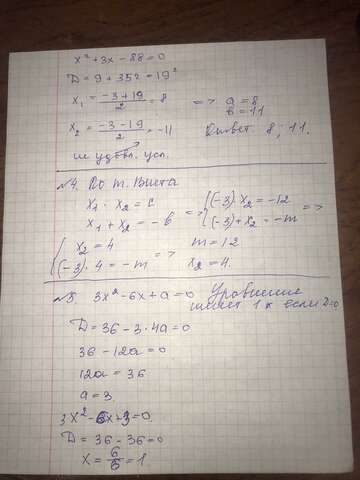 x² + 3x - 88 = 0
D = 9 + 352 = 19²
x₁ = (-3 + 19)/2 = 8 => a = 8
b = 11
x₂ = (-3 - 19)/2 = -11 Ответ 8, 11.
не удовл. усл.
№4. По т. Виета
x₁ · x₂ = c => { (-3) · x₂ = -12
x₁ + x₂ = -b { (-3) + x₂ = -m =>
{ x₂ = 4 => m = 12
{ (-3) · 4 = -m x₂ = 4.
№5 3x² - 6x + a = 0 Уравнение
имеет 1 к если D=0
D = 36 - 3 · 4a = 0
36 - 12a = 0
12a = 36
a = 3.
3x² - 6x + 3 = 0.
D = 36 - 36 = 0
x = 6/6 = 1